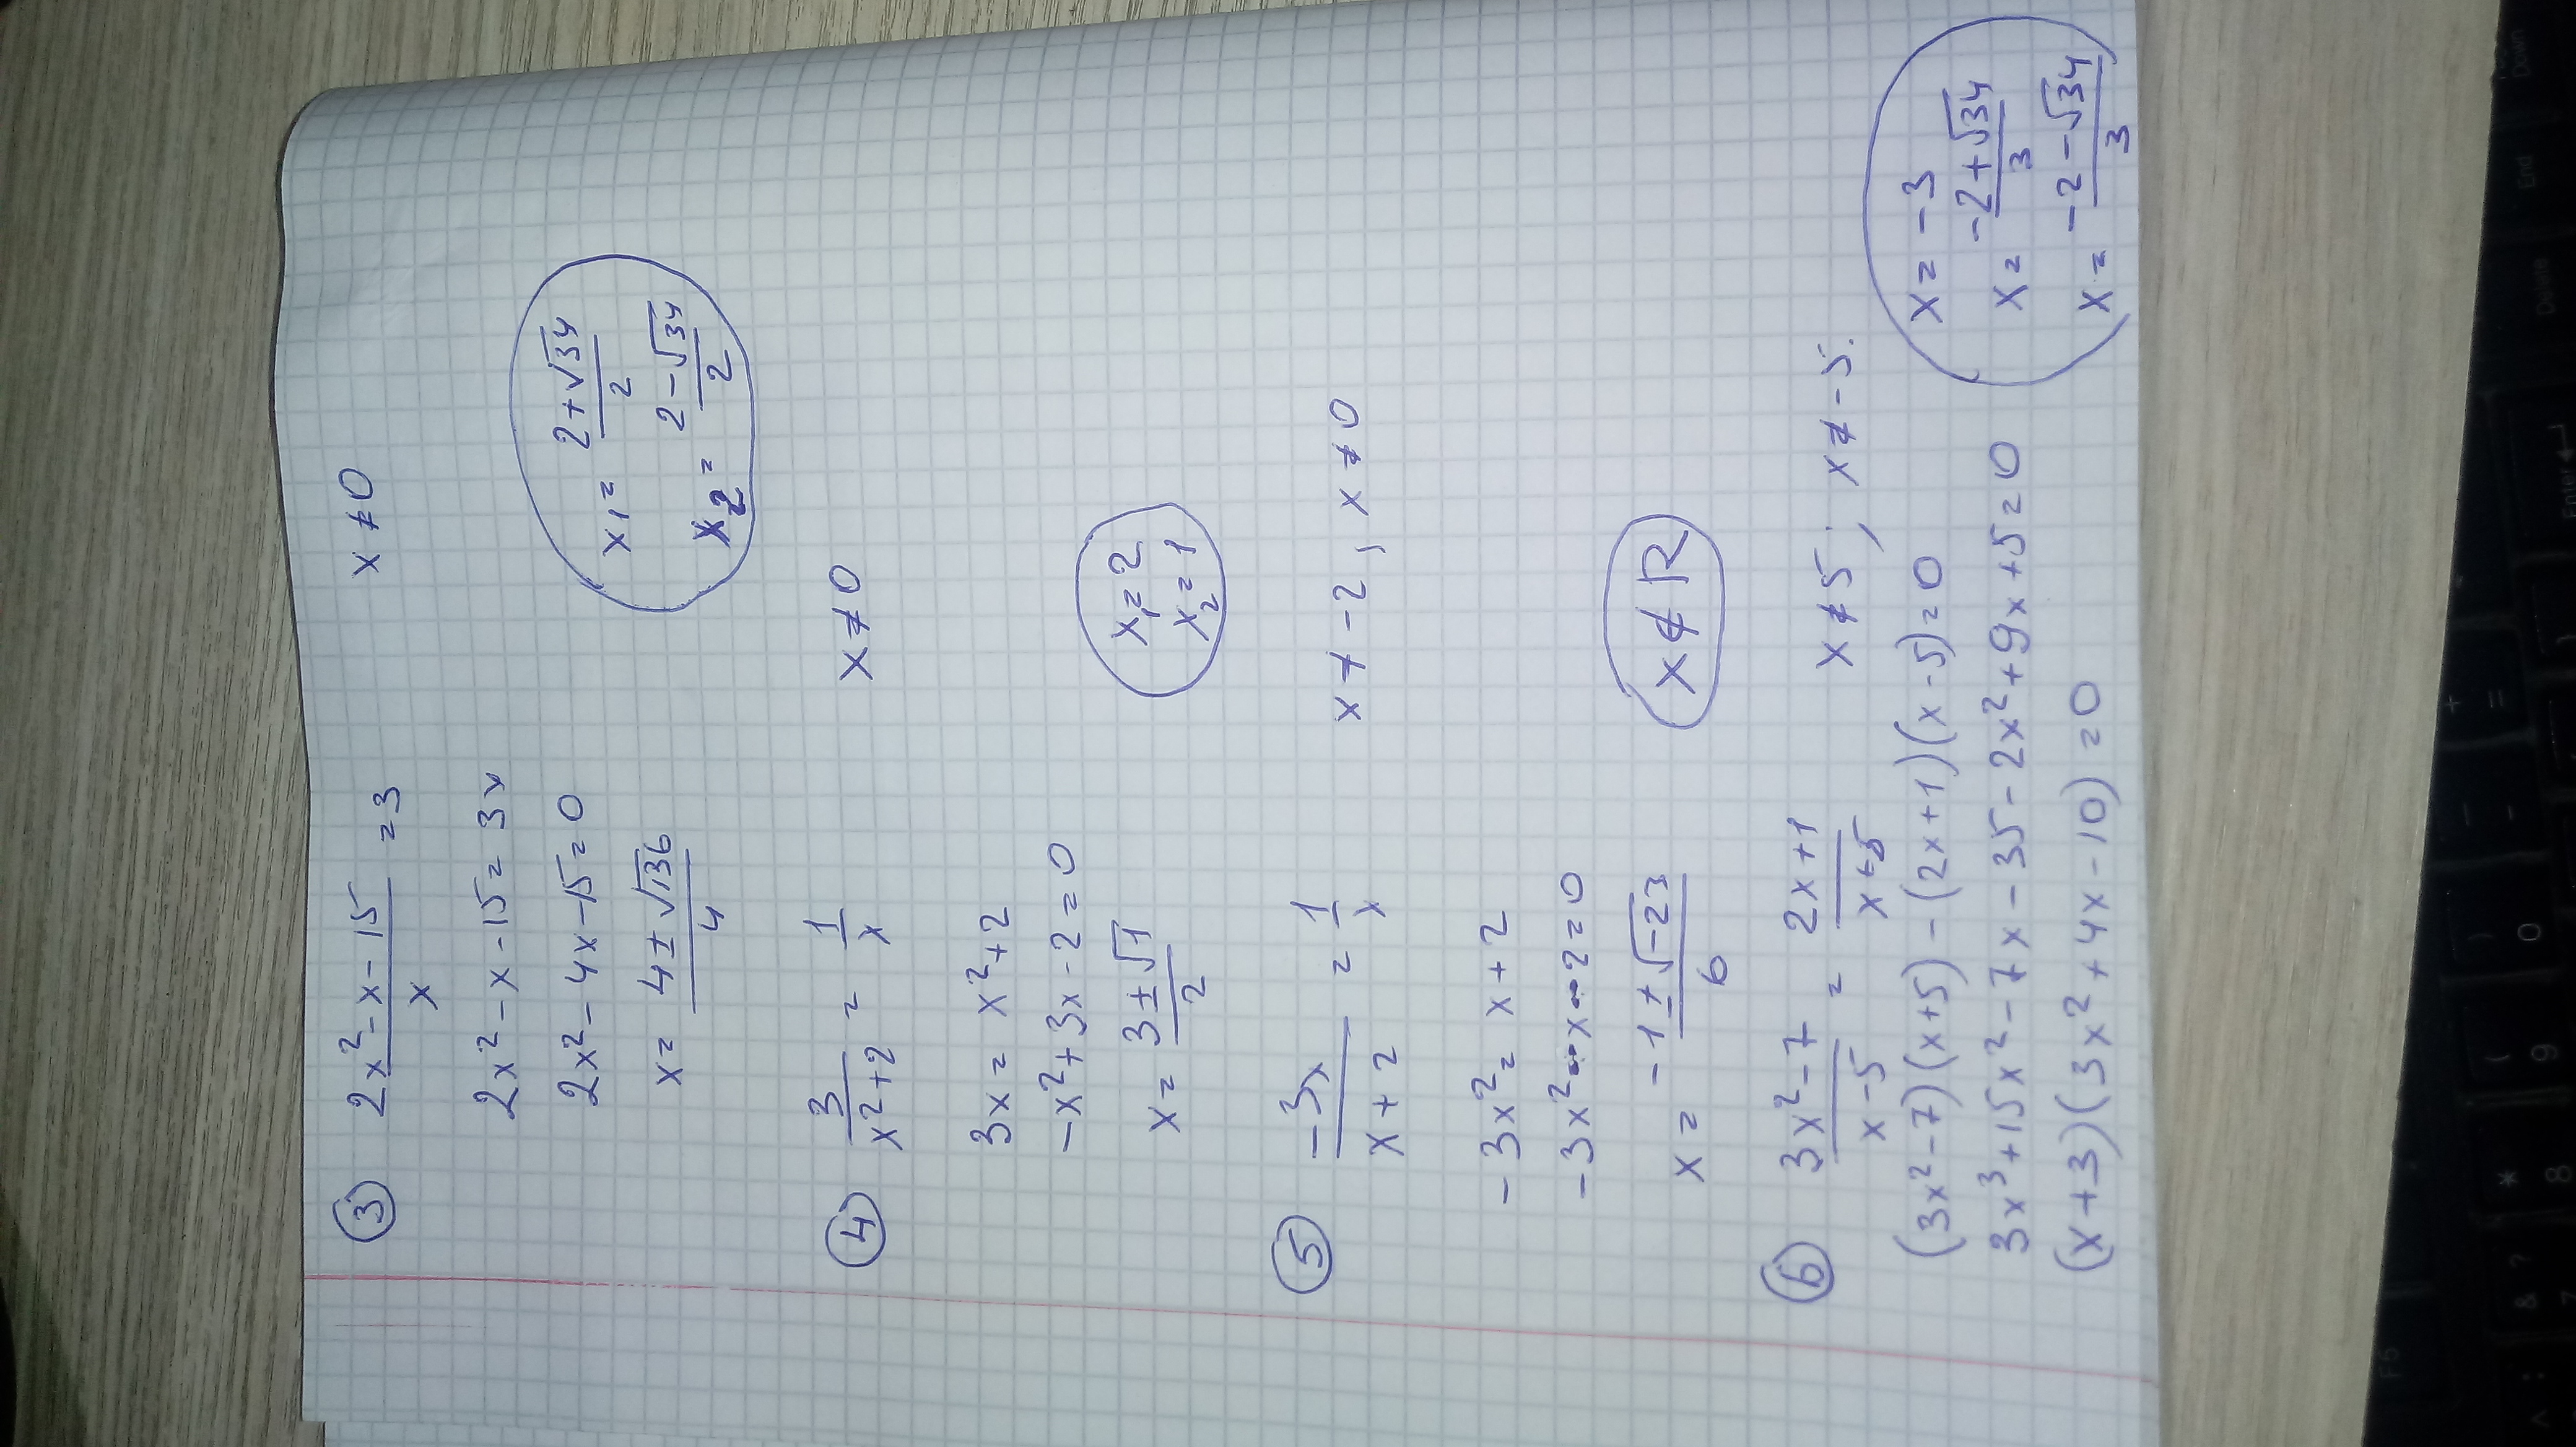 ③ (2x² - x - 15)/x = 3    x ≠ 0
2x² - x - 15 = 3x
2x² - 4x - 15 = 0
x = (4 ± √136)/4
x₁ = (2 + √34)/2
x₂ = (2 - √34)/2
④ 3/(x² + 2) = 1/x    x ≠ 0
3x = x² + 2
-x² + 3x - 2 = 0
x = (3 ± √1)/2
x₁ = 2
x₂ = 1
⑤ -3x/(x + 2) = 1/x    x ≠ -2, x ≠ 0
-3x² = x + 2
-3x² - x - 2 = 0
x = (-1 ± √-23)/6
x ∉ R
⑥ (3x² - 7)/(x - 5) = (2x + 1)/(x + 5)    x ≠ 5; x ≠ -5.
(3x² - 7)(x + 5) - (2x + 1)(x - 5) = 0
3x³ + 15x² - 7x - 35 - 2x² + 9x + 5 = 0
(x + 3)(3x² + 4x - 10) = 0
x = -3
x = (-2 + √34)/3
x = (-2 - √34)/3
F5
Enter
Delete
End
Down
^
:
&
?
7
*
8
(
9
)
0
_
-
+
=